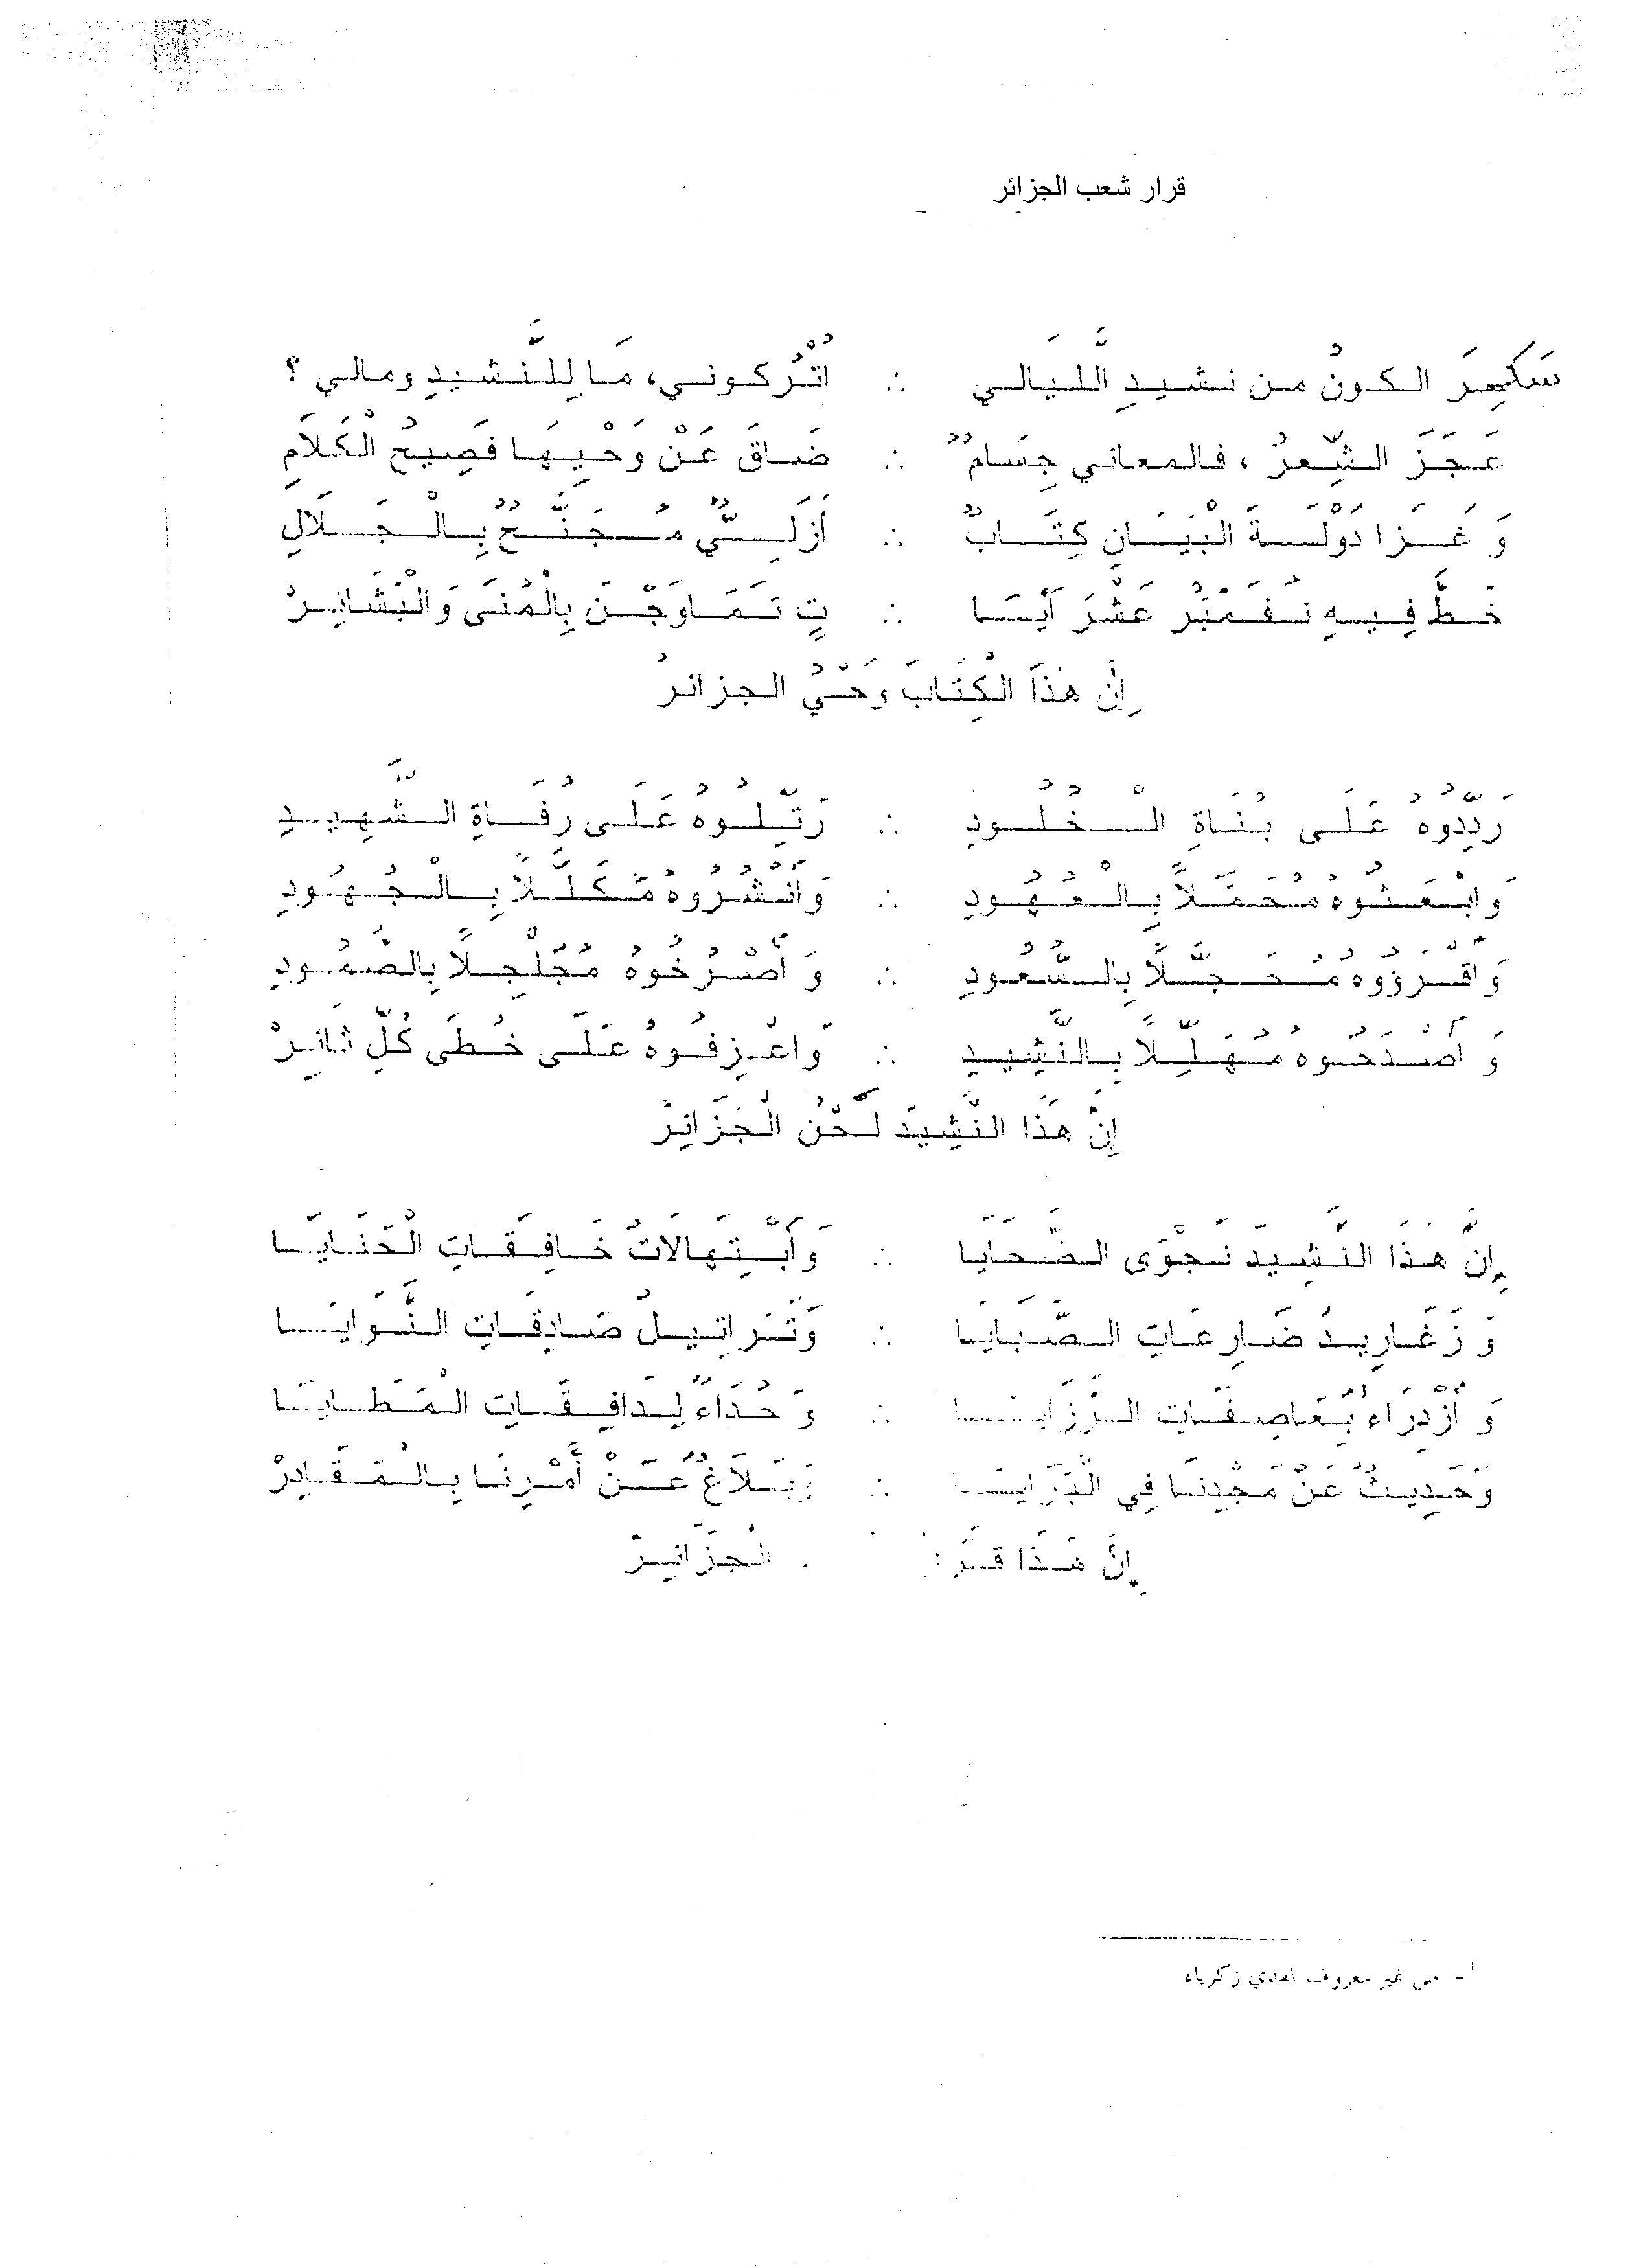 قرار شعب الجزائر
سَكِرَ الكونُ من نشيدِ اللَّيَالي ∴ اُتْرُكوني، مَا لِلنَّشيدِ ومالي ؟
عَجَزَ الشِّعرُ ، فالمعاني جِسَامٌ ∴ ضَاقَ عَنْ وَحْيِهَا فَصِيحُ الْكَلَامِ
وَ غَزَا دَوْلَةَ الْبَيَانِ كِتَابٌ ∴ أَزَلِيٌّ مُجَنَّحٌ بِالْجَلَالِ
خَطَّ فِيهِ نُفَمْبَرُ عَشْرَ آيَا ∴ تٍ تَمَاوَجْنَ بِالْمُنَى وَالْبَشَائِرْ
إِنَّ هَذَا الْكِتَابَ وَحْيُ الجزائرْ
رَدِّدُوهُ عَلَى بُنَاةِ الْخُلُودِ ∴ رَتِّلُوهُ عَلَى رُفَاةِ الشَّهِيدِ
وَابْعَثُوهُ مُحَمَّلاً بِالْعُهُودِ ∴ وَانْشُرُوهُ مُكَلَّلاً بِالْجُهُودِ
وَاقْرَؤُوهُ مُحَجَّلاً بِالسُّعُودِ ∴ وَ اصْرُخُوهُ مُجَلْجِلاً بِالصُّمُودِ
وَ اصْدَحُوهُ مُهَلِّلاً بِالنَّشِيدِ ∴ وَاعْزِفُوهُ عَلَى خُطَى كُلِّ ثَائِرْ
إِنَّ هَذَا النَّشِيدَ لَحْنُ الْجَزَائِرْ
إِنَّ هَذَا النَّشِيدَ نَجْوَى الضَّحَايَا ∴ وَابْتِهَالَاتُ خَافِقَاتِ الْحَنَايَا
وَ زَغَارِيدُ ضَارِعَاتِ الصَّبَايَا ∴ وَتَرَاتِيلُ صَادِقَاتِ النَّوَايَا
وَ ازْدِرَاءٌ بِعَاصِفَاتِ الرَّزَايَا ∴ وَ حُدَاءٌ لِدَافِقَاتِ الْمَطَايَا
وَحَدِيثٌ عَنْ مَجْدِنَا فِي الْبَرَايَا ∴ وَبَلَاغٌ عَنْ أَمْرِنَا بِالْمَقَادِرْ
إِنَّ هَذَا قَرَ الْجَزَائِرْ
1ـ من غير معروف لمفدي زكرياء